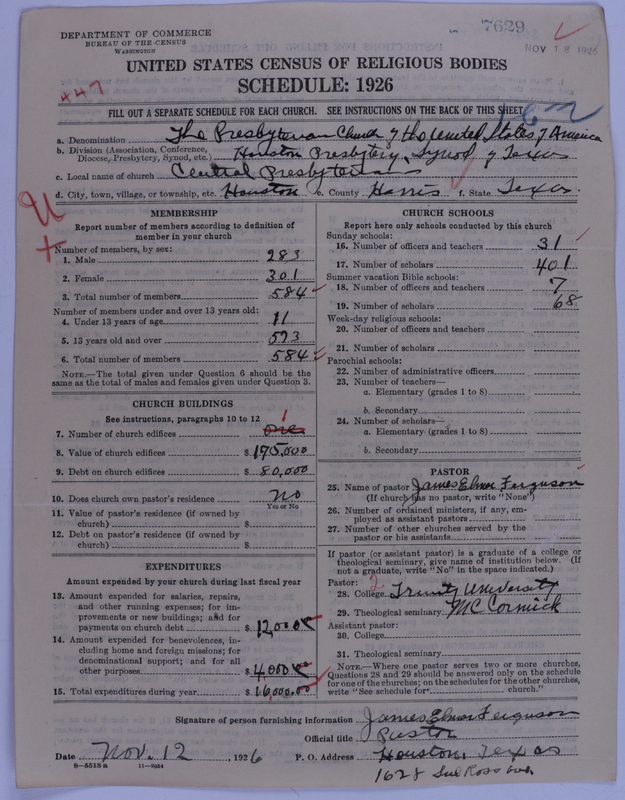 7629
NOV 18 1926
DEPARTMENT OF COMMERCE
BUREAU OF THE CENSUS
WASHINGTON
UNITED STATES CENSUS OF RELIGIOUS BODIES
SCHEDULE: 1926
447
FILL OUT A SEPARATE SCHEDULE FOR EACH CHURCH. SEE INSTRUCTIONS ON THE BACK OF THIS SHEET
a. Denomination The Presbyterian Church of the United States of America
b. Division (Association, Conference, Diocese, Presbytery, Synod, etc.) Houston Presbytery, Synod of Texas
c. Local name of church Central Presbyterian
d. City, town, village, or township, etc. Houston e. County Harris f. State Texas.
MEMBERSHIP
Report number of members according to definition of
member in your church
Number of members, by sex:
1. Male 283
2. Female 301
3. Total number of members 584
Number of members under and over 13 years old:
4. Under 13 years of age 11
5. 13 years old and over 573
6. Total number of members 584
NOTE.—The total given under Question 6 should be the
same as the total of males and females given under Question 3.
CHURCH BUILDINGS
See instructions, paragraphs 10 to 12
7. Number of church edifices one 1
8. Value of church edifices $ 175,000
9. Debt on church edifices $ 80,000
10. Does church own pastor's residence no
Yes or No
11. Value of pastor's residence (if owned by
church) $
12. Debt on pastor's residence (if owned by
church) $
EXPENDITURES
Amount expended by your church during last fiscal year
13. Amount expended for salaries, repairs,
and other running expenses; for im-
provements or new buildings; and for
payments on church debt $ 12,000
14. Amount expended for benevolences, in-
cluding home and foreign missions; for
denominational support; and for all
other purposes $ 4,000
15. Total expenditures during year $ 16,000.00
CHURCH SCHOOLS
Report here only schools conducted by this church
Sunday schools:
16. Number of officers and teachers 31
17. Number of scholars 401
Summer vacation Bible schools:
18. Number of officers and teachers 7
19. Number of scholars 68
Week-day religious schools:
20. Number of officers and teachers
21. Number of scholars
Parochial schools:
22. Number of administrative officers
23. Number of teachers—
a. Elementary (grades 1 to 8)
b. Secondary
24. Number of scholars—
a. Elementary (grades 1 to 8)
b. Secondary
PASTOR
25. Name of pastor James Elmer Ferguson
(If church has no pastor, write "None")
26. Number of ordained ministers, if any, em-
ployed as assistant pastors
27. Number of other churches served by the
pastor or his assistants
If pastor (or assistant pastor) is a graduate of a college or
theological seminary, give name of institution below. (If
not a graduate, write "No" in the space indicated.)
Pastor: 2
28. College Trinity University
29. Theological seminary McCormick
Assistant pastor:
30. College
31. Theological seminary
NOTE.—Where one pastor serves two or more churches,
Questions 28 and 29 should be answered only on the schedule
for one of the churches; on the schedules for the other churches,
write "See schedule for church."
Signature of person furnishing information James Elmer Ferguson
Official title Pastor
Date Nov. 12, 1926 P. O. Address Houston, Texas
8-5513 a 11-9054
1628 Sul Ross Ave